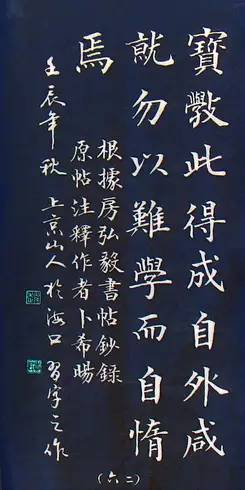 寶斅此得成自外咸
就勿以難學而自惰
焉
根據房弘毅書帖鈔録
原帖注釋作者卜希暘
壬辰年秋上京山人於海口習字之作
(六二)